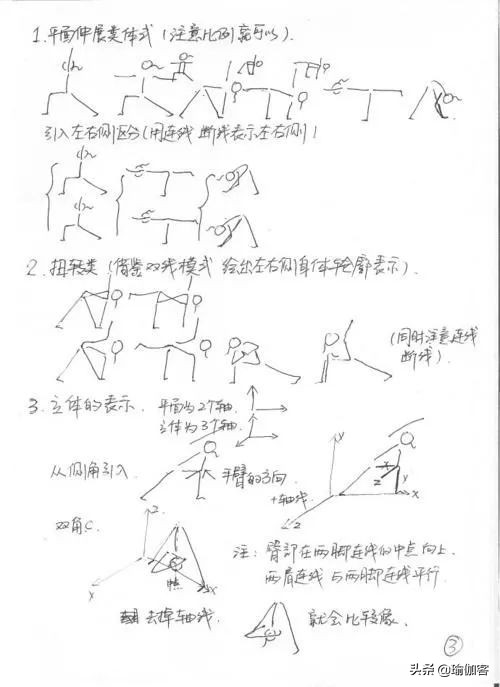 1.平面伸展类体式(注意比例离可以).
引入左右侧区分(用连线 断线表示左右侧)
2.扭转类(借鉴双线模式 绘出左右侧身体轮廓表示).
(同时注意连线
断线).
3.立体的表示. 平面为2个轴.
立体为3个轴.
从侧角引入
手臂的方向
+轴线.
Y
Z
Y
X
Z
双角C
Z
X
X
中点
注:臀部在两脚连线的中点向上.
两肩连线与两脚连线平行.
去掉轴线.
就会比较像.
③
头条 @瑜伽客